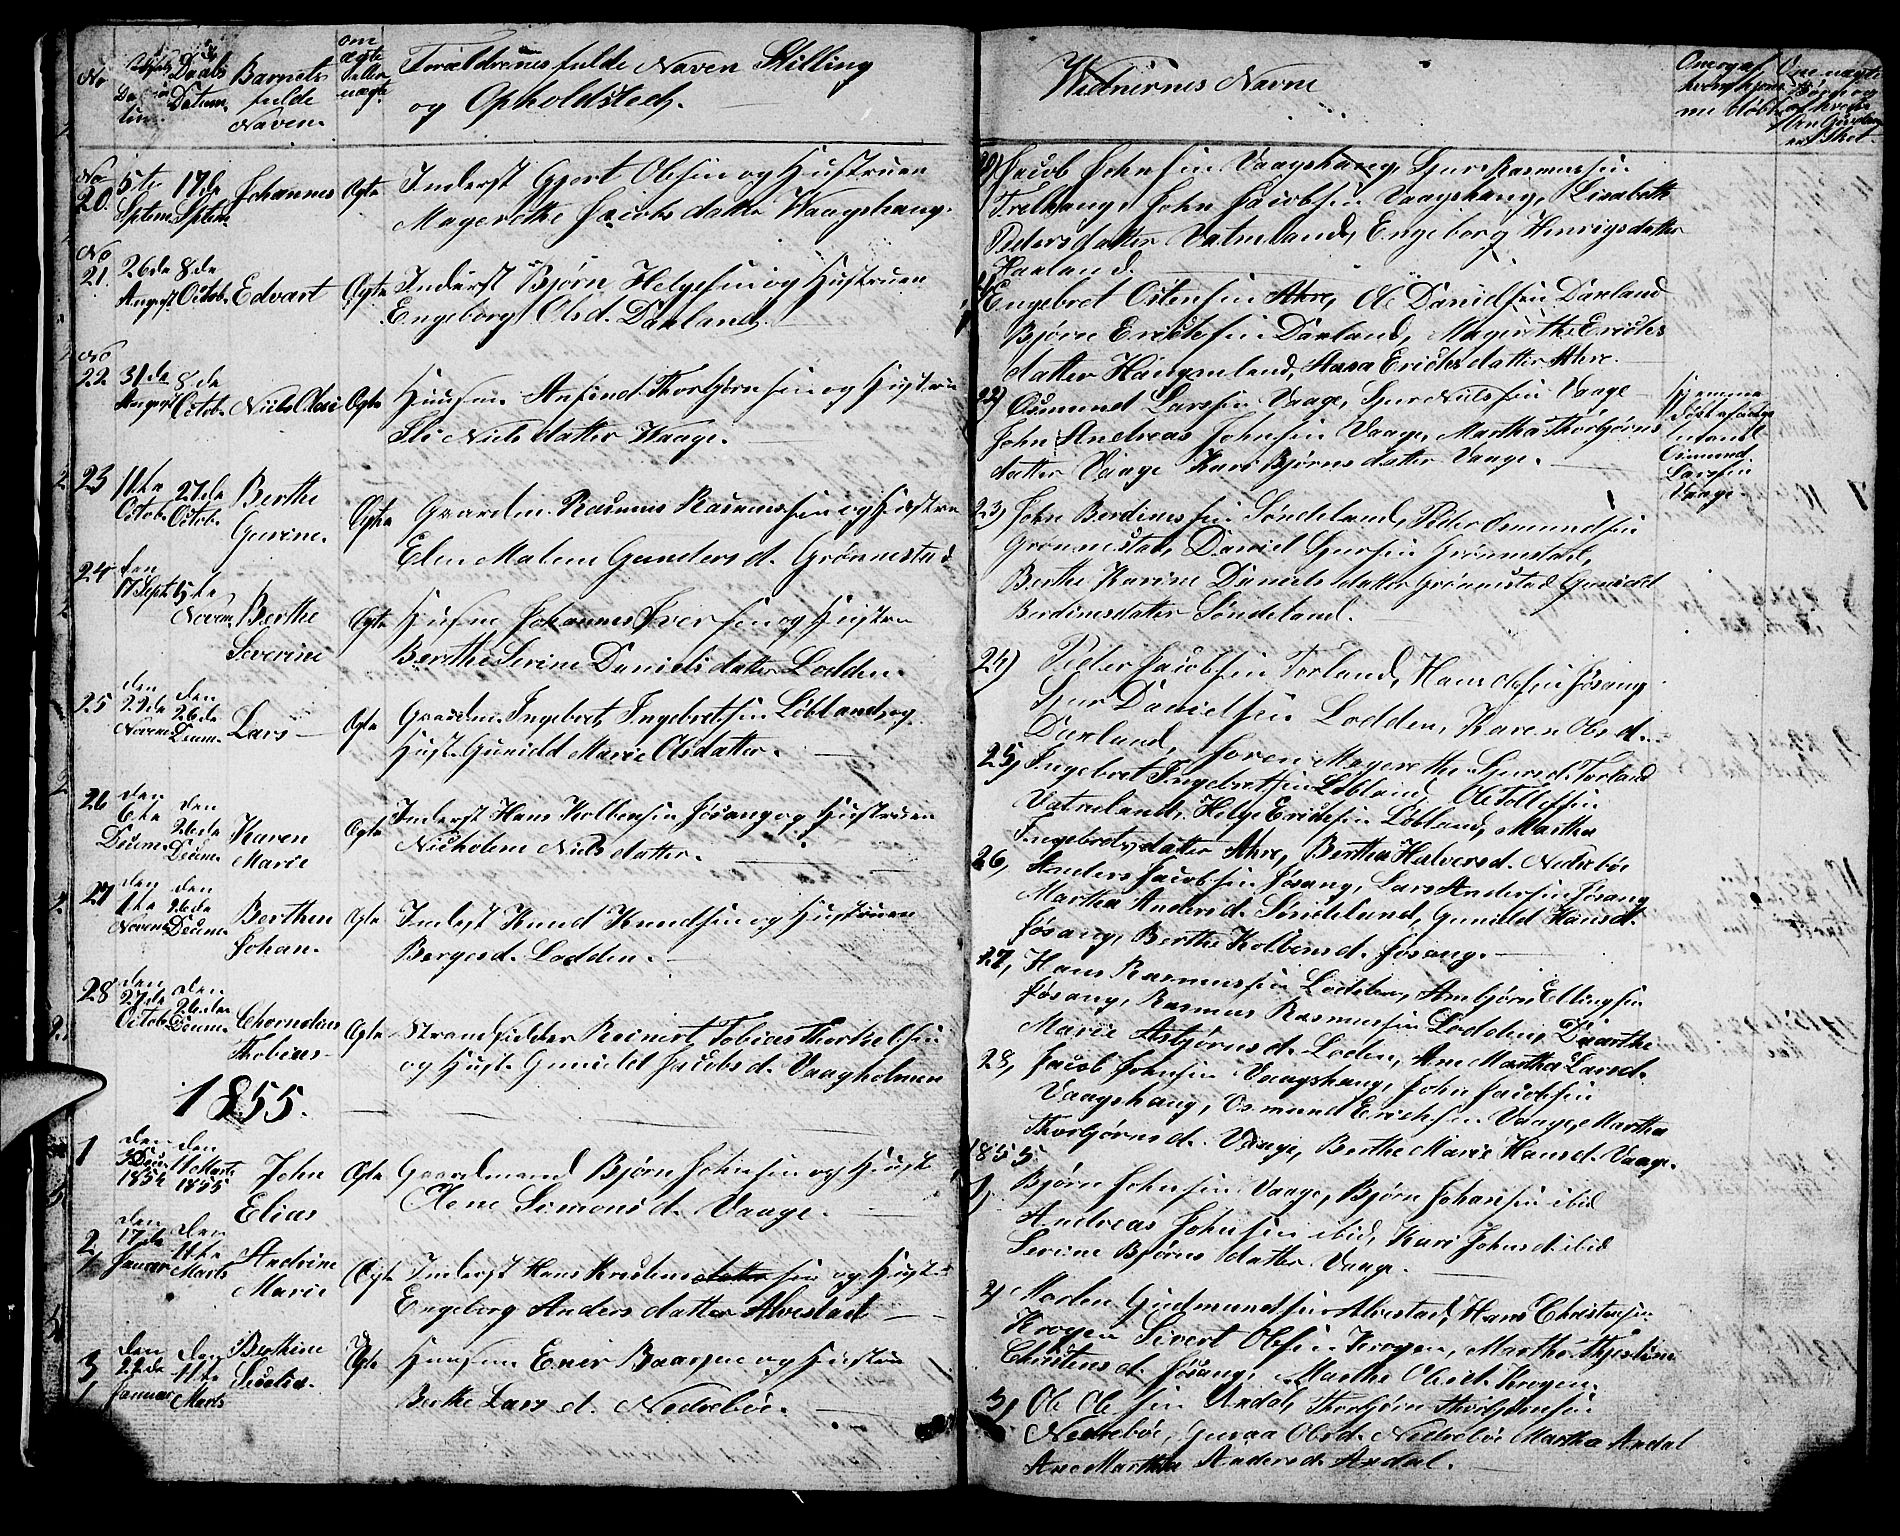 No
Daabs Datum.
Barnets
fulde
Naven.
om
ægte
eller
uægte
Forældrenes fulde Naven Stilling
og Opholdsted.
No
20.
5te
Septem
17de
Septem.
Johannes
Ægte
Inderst Gjert Olsen og Hustruen
Magerethe Jacobsdatter Vaagshang.
No
21.
26de
August
8de
Octob.
Edvart
Ægte
Inderst Bjørn Helgesen og Hustruen
Engeborg Olsd. Dærland.
No
22
31de
August
8de
Octob.
Niels Olai
Ægte
Huusm. Anfind Thorbjørnsen og Hustru
Sli Nielsdatter Vaage.
23
11te
Octob.
27de
Octob.
Berthe
Gurine.
Ægte
Gaardm. Rasmus Rasmussen og Hustru
Elen Malene Gundersd. Grønnestad
24
den
17 Sept.
5te
Novem.
Berthe
Severine
Ægte
Husm. Johannes Iversen og Hustru
Berthe Serine Danielsdatter Lodden.
25
den
22de
Novem.
den
26de
Decem.
Lars
Ægte
Gaardm. Ingebret Ingebretsen Løbland, og
Hust. Gunild Marie Olsdatter.
26
den
6te
Decem.
den
26de
Decem.
Karen
Marie
Ægte
Inderst Hans Kolbensen Jøsang og Hustruen
Nicholine Nielsdatter.
27
den
1te
Novem.
den
26de
Decem.
Berthen
Johan.
Ægte
Inderst Knud Knudsen og Hustruen
Børgesd. Lodden.
28
den
27de
Octob.
den
26de
Decem.
Chornelius
Thobias
Ægte
Strandsidder Reinert Tobias Thorkelsen
og Hust. Gunild Jacobsd. Vaagholmen
1855.
1
den
3 Decem.
1854
den
11 Marts
1855
John
Elias
Ægte
Gaardmand Bjørn Johnsen og Hust.
Olene Simonsd. Vaage.
2
den
17de
Januar
den
11te
Marts
Andrine
Marie
Ægte
Inderst Hans Kristensdatter sen og Hust.
Engeborg Andersdatter Alvestad
3
den
22de
Januar
den
11te
Marts
Berthine
Secilia.
Ægte
Huusm. Ener Baarsne og Hustru
Berthe Larsd. Nedrebøe.
Vidnernes Navne
20) Jacob Johnsen Vaagshang, Sjur Rasmussen
Trelhang, John Jacobsen Vaagshang, Lisabeth
Pedersdatter Vatneland, Engeborg Henrigsdatter
Harland.
Engebret Ostensen Ahre, Ole Danielsen Dærland
Bjørn Erichsen Dærland, Magrethe Erichs
datter Haugmland, Aasa Erichsdatter Ahre.
22) Osmund Larssen Vaage, Sjur Nielsen Vaage
John Andreas Johnsen Vaage, Martha Thorbjørns
datter Vaage Kari Bjørnsdatter Vaage.
Hjemme
døbt af
Osmund
Larssen
Vaage
23) John Berdinessen Søndeland, Peder Osmundsen
Grønnestad, Daniel Sjursen Grønnestad,
Berthe Karine Danielsdatter Grønnestad Gunild
Berdinesdatter Søndeland.
24) Peder Jacobsen Torland, Hans Olsen Jøsang
Sjur Danielsen Lodden, Karen Olsd.
Dærland, Joren Magerethe Sjursd. Torland
25, Ingebret Ingebretsen Løbland, Ole Tollefsen
Vatneland, Helge Erichsen Løbland, Martha
Ingebretsdatter Ahre, Berthe Halversd. Nedrebøe
26, Anders Jacobsen Jøsang, Lars Andersen Jøsang
Martha Andersd. Søndeland, Gunild Hansd.
Jøsang, Berthe Kolbensd. Jøsang.
27, Hans Rasmussen Lodden, Ambjørn Ellingsen
Jøsang, Rasmus Rasmussen Lodden, Dorthe
Marie Asbjørnsd. Loden, Ane Martha Larsd.
28, Jacob Johnsen Vaagshang, John Jacobsen
Vaagshang, Osmund Erichsen Vaage, Martha
Thorbjørnsd. Vaage, Berthe Marie Hansd. Vaage.
1855.
1, Bjørn Johnsen Vaage, Bjørn Johansen ibid
Andreas Johnsen ibid, Kari Johnsd. ibid
Serine Bjørnsdatter Vaage.
2) Maden Gudmundsen Alvestad, Hans Christensen
Krogen Sivert Olsen Krogen, Martha Thjerstine
Christensd. Jøsang, Marthe Olsd. Krogen.
3) Ole Olsen Andal, Thorbjørn Thorbjørnsen
Nedrebøe, Guraa Olsd. Nedrebøe Martha Andal
Ane Martha Andersd. Andal.